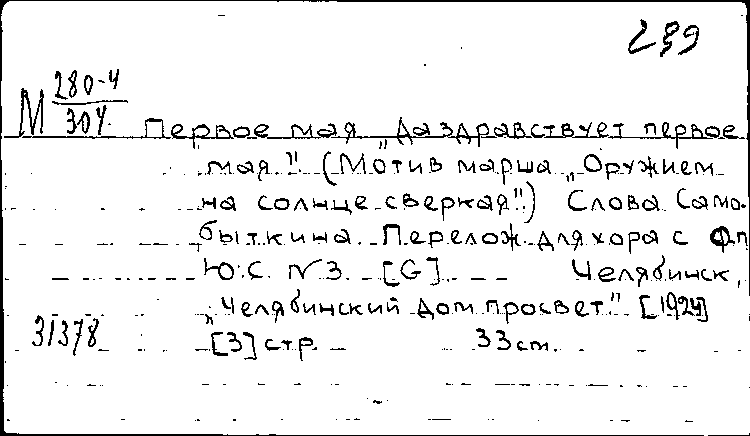 299
М 280-4
304
Первое мая „Да здравствует первое
мая." (Мотив марша „Оружием
на солнце сверкая".) Слова Само-
быткина. Перелож. для хора с фп
Ю.С. №3. [G]. Челябинск,
„Челябинский Дом просвет." [1924]
31378
[3] стр. 33 см.